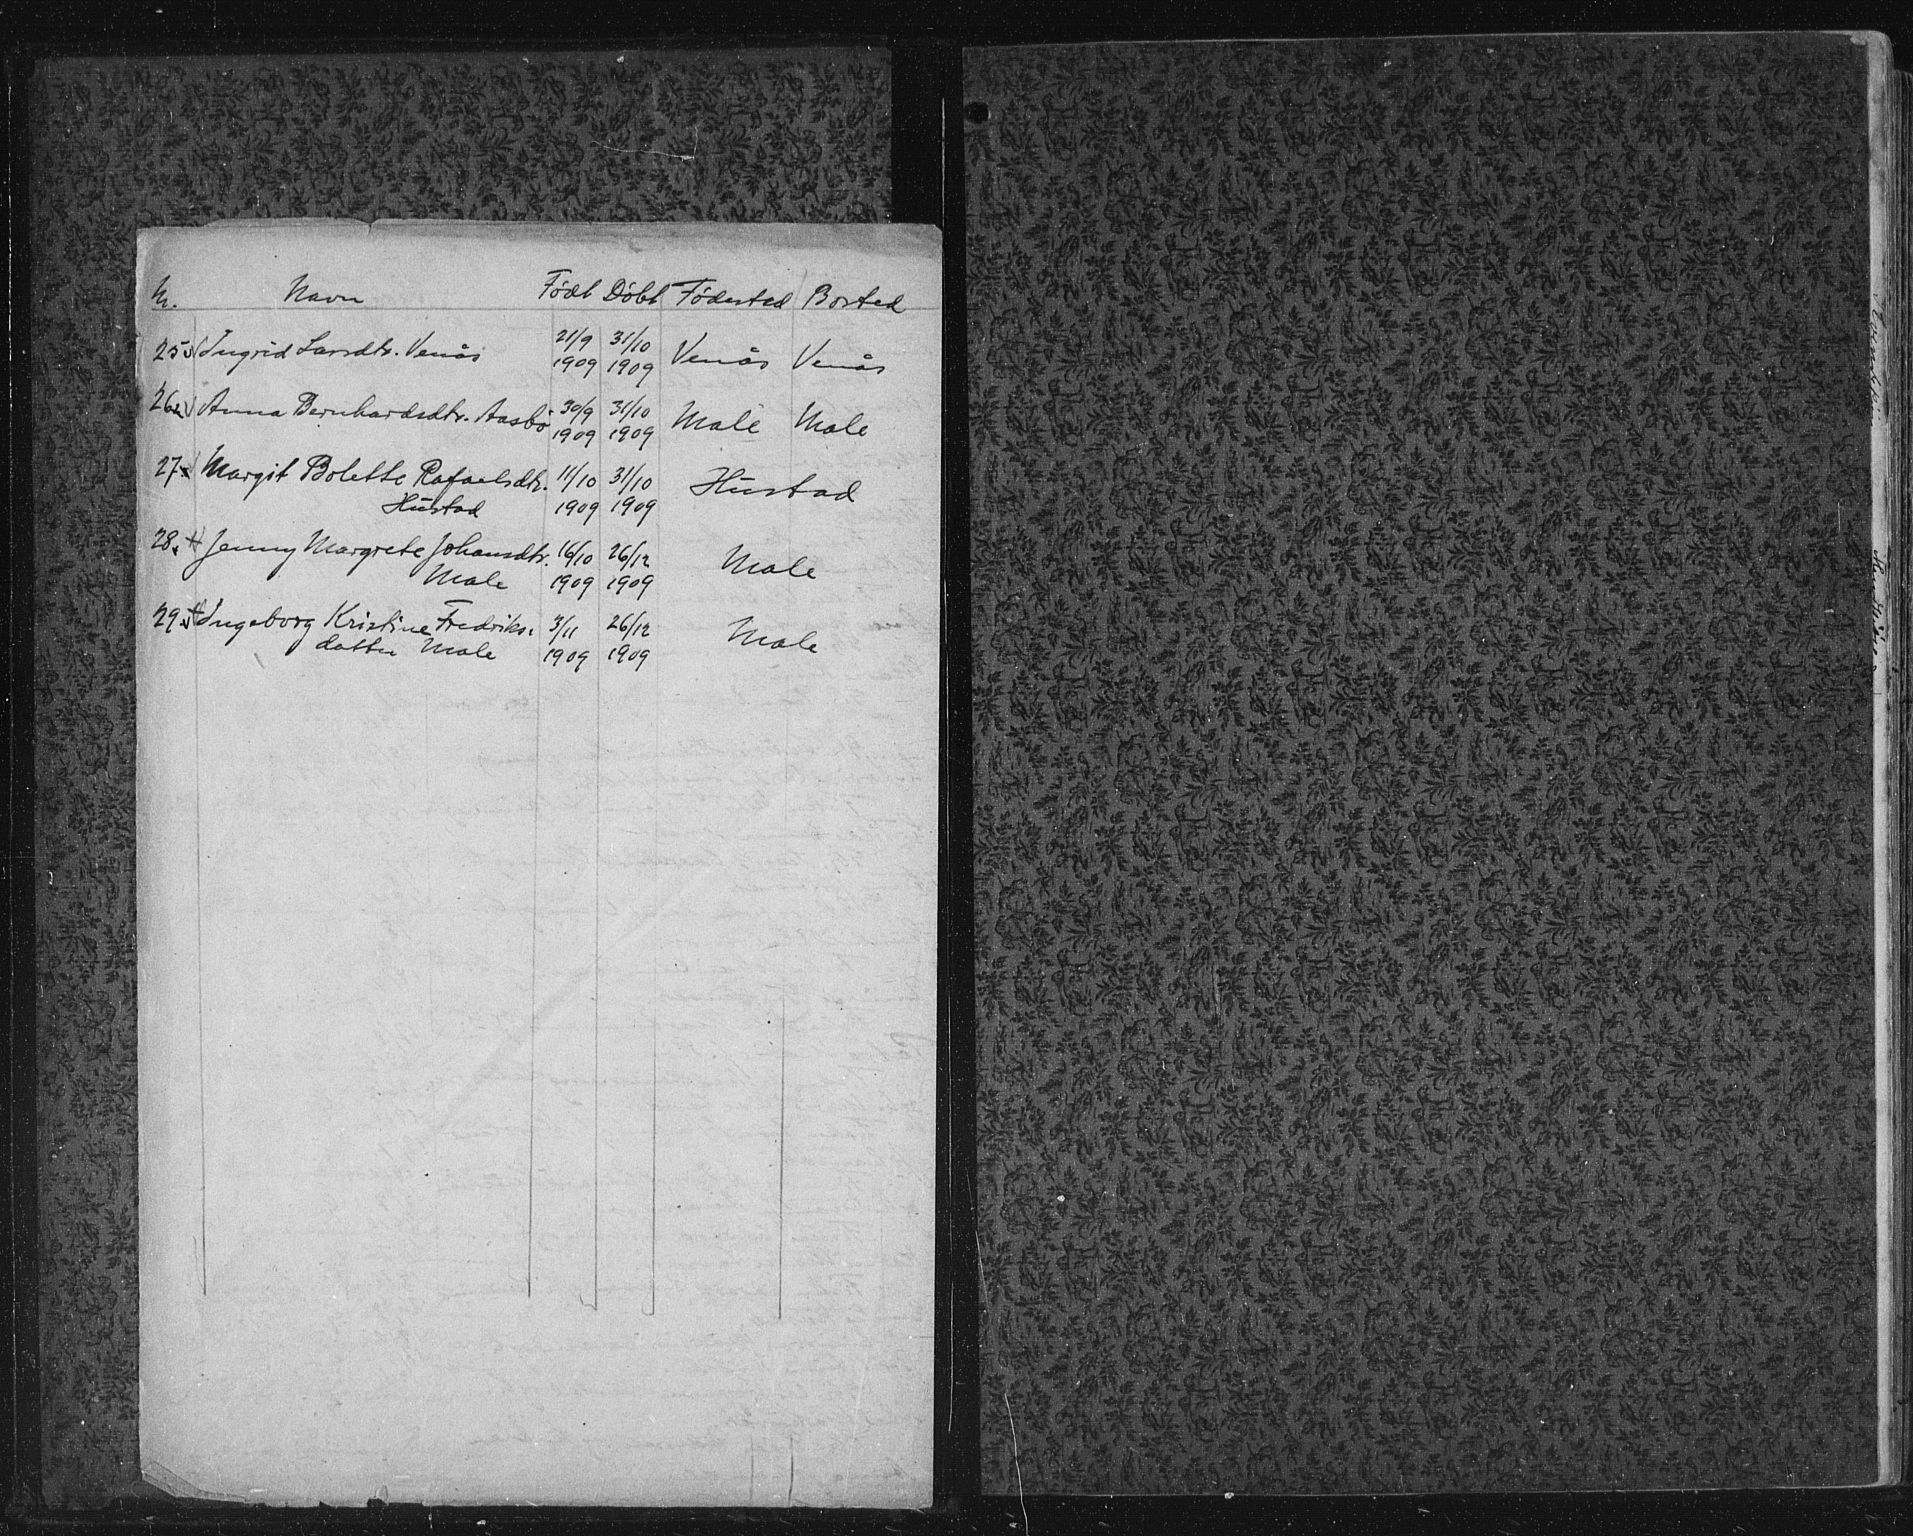 Nr. Navn Född Döbt Födested Bosted
25. Ingrid Larsdtr. Venås 21/9 1909 31/10 1909 Venås Venås
26. Anna Bernhardsdtr. Aasbö 30/9 1909 31/10 1909 Male Male
27. Margit Bolette Rafaelsdtr. 11/10 1909 31/10 1909 Hustad
Hustad
28. Jenny Margrete Johansdtr. 16/10 1909 26/12 1909 Male
Male
29. Ingeborg Kristine Fredriks- 3/11 1909 26/12 1909 Male
datter Male